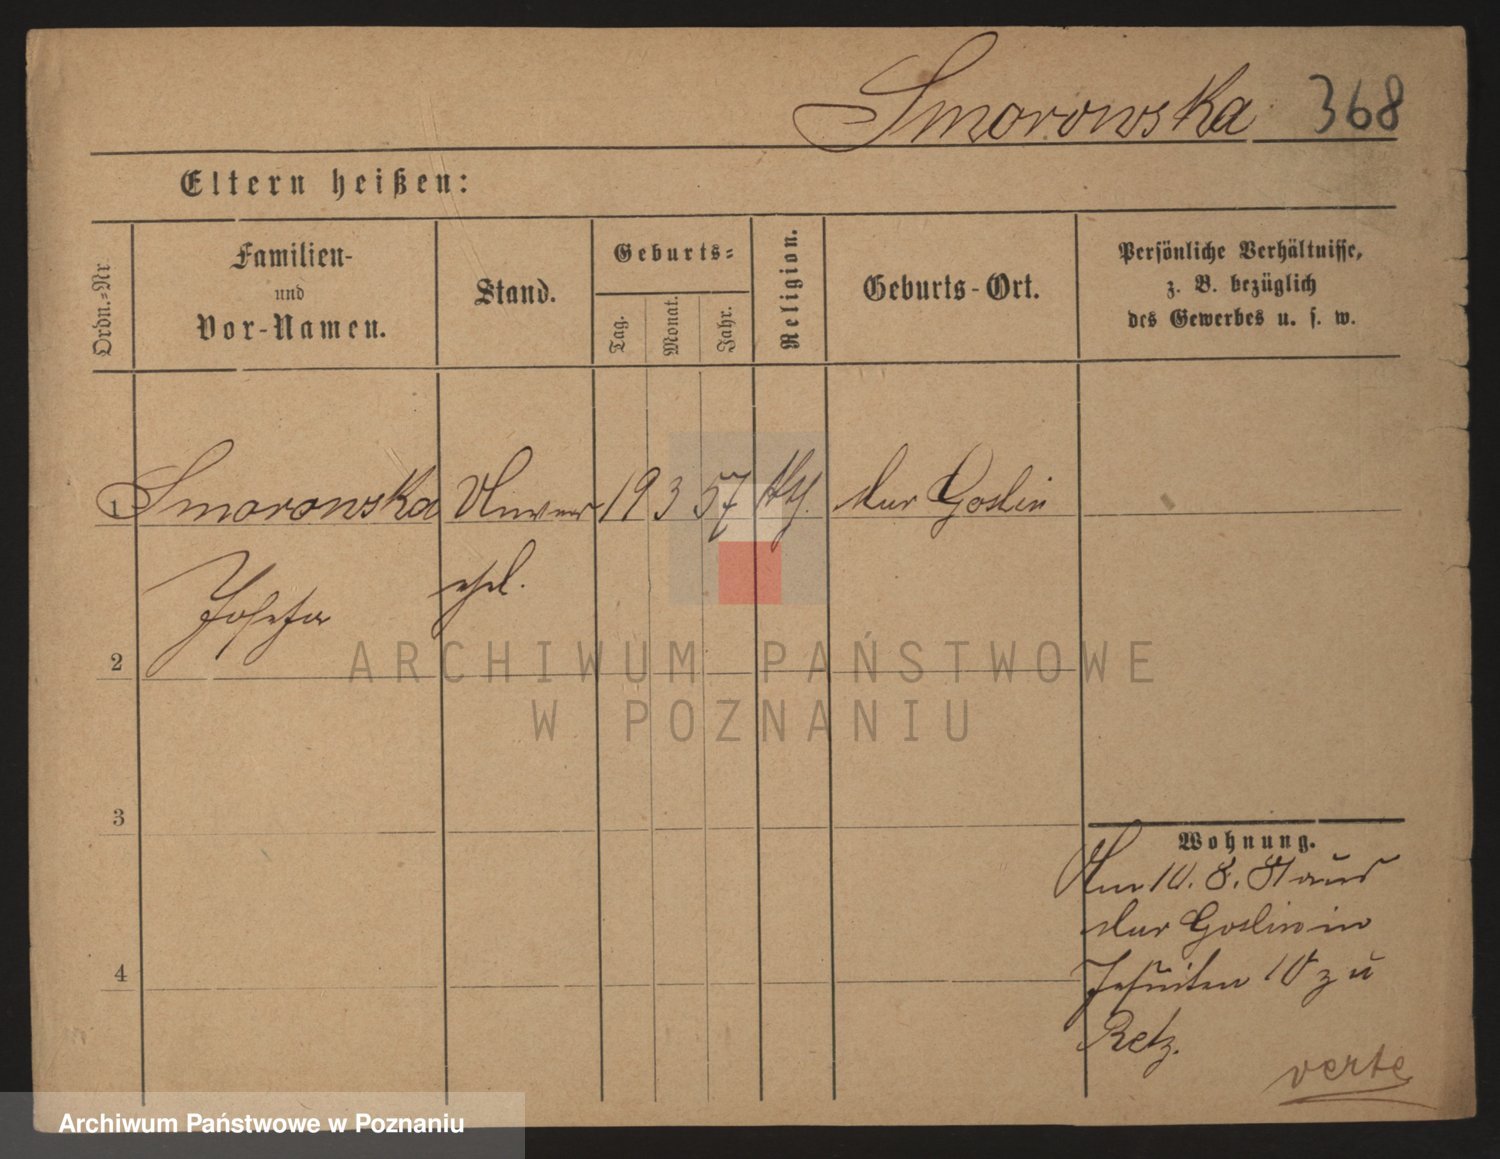 Smorowska 368
Eltern heißen:
Ordn.-Nr
Familien-
und
Vor-Namen.
Stand.
Geburts-
Tag.
Monat.
Jahr.
Religion.
Geburts-Ort.
Persönliche Verhältnisse,
z. B. bezüglich
des Gewerbes u. s. w.
1 Smorowska 19 3 57 Goslin
ehel.
Josefa
2
ARCHIWUM PAŃSTWOWE
W POZNANIU
3
Wohnung.
10. 8. 81 aus
Goslin in
4
Jesuiten 10 zu
Retz.
verte
Archiwum Państwowe w Poznaniu